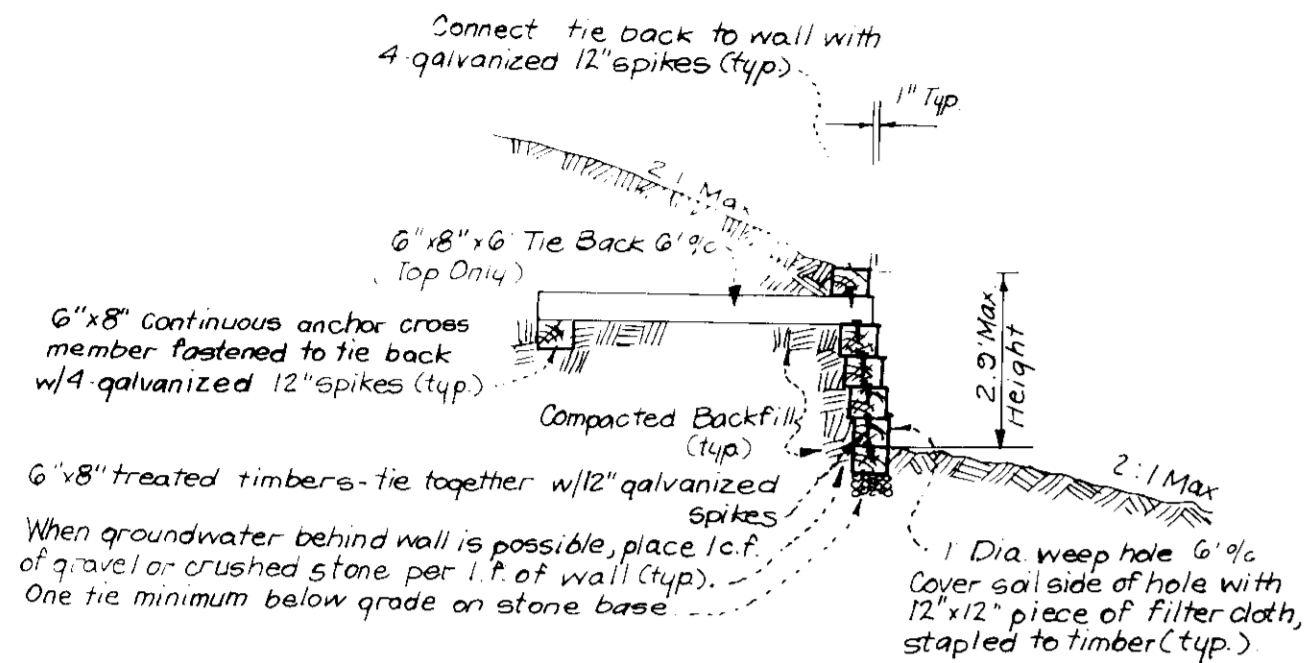 Connect tie back to wall with
4-galvanized 12" spikes (typ.)
1" Typ.
2:1 Max
6"x8"x6' Tie Back 6' o/c
(Top Only)
6"x8" Continuous anchor cross
member fastened to tie back
w/4-galvanized 12" spikes (typ.)
2.9' Max.
Height
Compacted Backfill
(typ.)
6"x8" treated timbers-tie together w/12" galvanized
spikes
2:1 Max
When groundwater behind wall is possible, place 1c.f.
of gravel or crushed stone per l.f. of wall (typ.).
One tie minimum below grade on stone base
1" Dia. weep hole 6' o/c
Cover soil side of hole with
12"x12" piece of filter cloth,
stapled to timber (typ.).